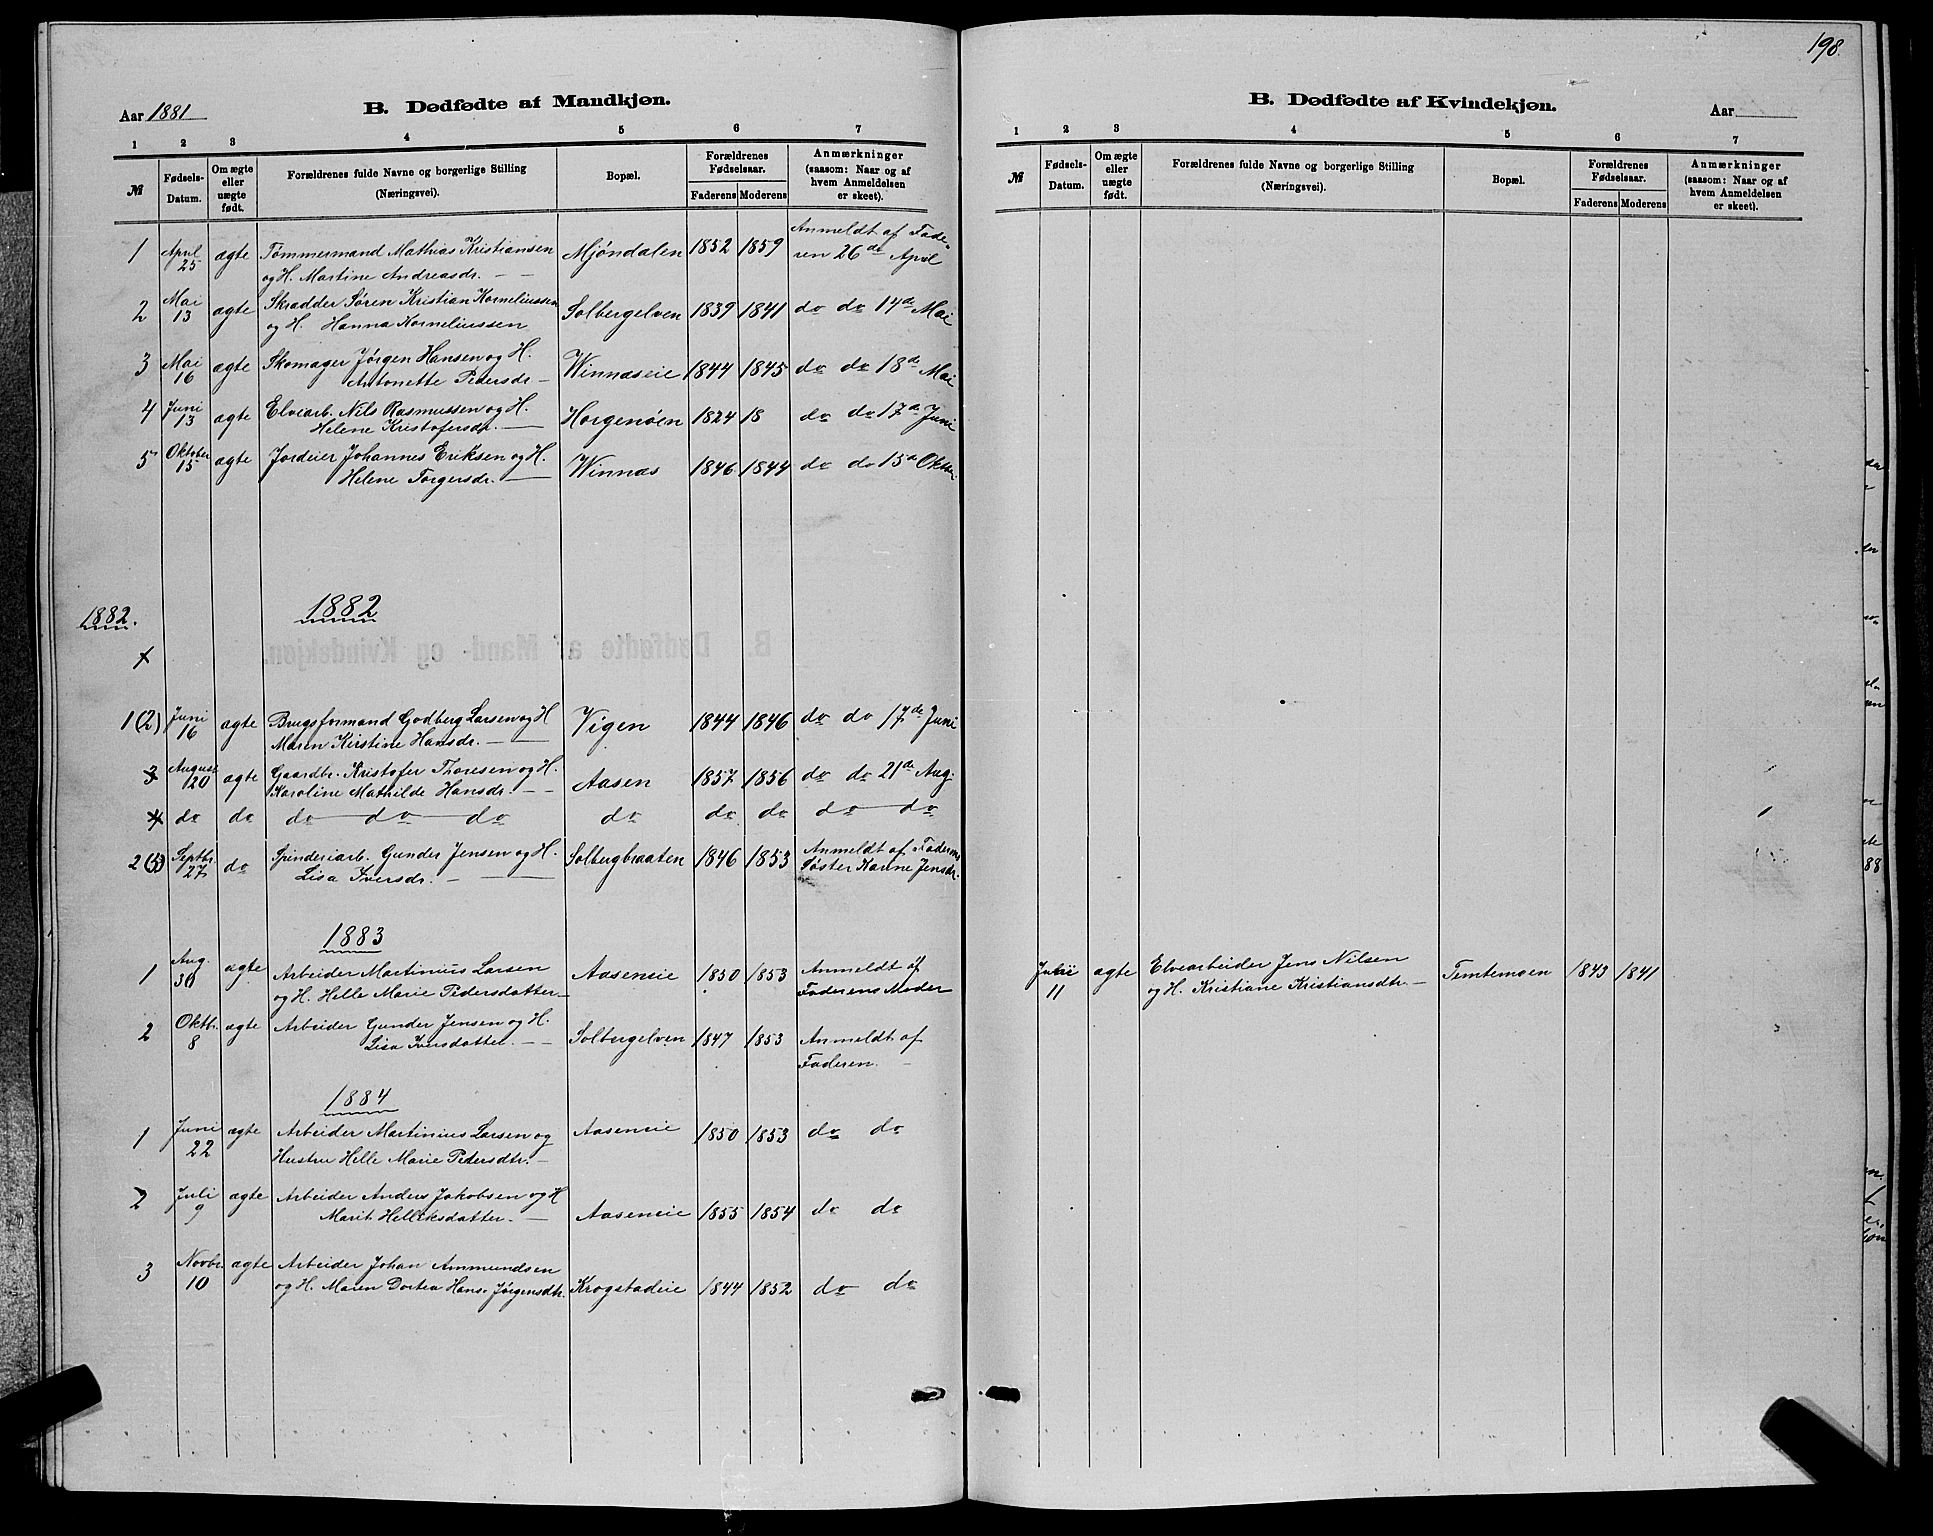 198.
Aar 1881
B. Dødfødte af Mandkjøn.
1 2 3 4 5 6 7
№
Fødsels-Datum.
Om ægte eller uægte født.
Forældrenes fulde Navne og borgerlige Stilling
(Næringsvei).
Bopæl.
Forældrenes Fødselsaar.
Faderens Moderens
Anmærkninger
(saasom: Naar og af
hvem Anmeldelsen
er skeet).
1 April 25 ægte Tømmermand Mathias Kristiansen Mjøndalen 1852 1859 Anmeldt af Fade-
og H. Martine Andreasdr. ren 26de April
2 Mai 13 ægte Skradder Søren Kristian Korneliussen Solbergelven 1839 1841 do do 14de Mai
og H. Hanna Korneliussen
3 Mai 16 ægte Skomager Jørgen Hansen og H. Winnæseie 1844 1845 do do 18de Mai
Antonette Pedersdr
4 Juni 13 ægte Elvearb. Nils Rasmussen og H. Horgenøen 1824 18 do do 17d Juni
Helene Kristofersdr.
5 Oktober 15 ægte Jordeier Johannes Eriksen og H. Winnæs 1846 1844 do do 15d Oktber.
Helene Torgersdr.
1882. 1882
1(2) Juni 16 ægte Brugsformand Godberg Larsen og H Vigen 1844 1846 do do 17de Juni
Maren Kirstine Hansdr.
3 August 20 ægte Gaardbr. Kristofer Thoresen og H. Aasen 1857 1856 do do 21de Aug.
Karoline Mathilde Hansdr.
4 do do do do do do do do do do
2(5) Septbr. 27 do Spinderiarb. Gunder Jensen og H. Solbergbraaten 1846 1853 Anmeldt af Faderens
Lisa Iversdr. Søster Karine Jensdr.
1883
1 Aug. 30 ægte Arbeider Martinius Larsen Aaseneie 1850 1853 Anmeldt af
og H. Helle Marie Pedersdatter Faderens Moder
2 Oktbr. 8 ægte Arbeider Gunder Jensen og H. Solbergelven 1847 1853 Anmeldt af
Lisa Iversdatter. Faderen.
1884
1 Juni 22 ægte Arbeider Martinius Larsen og Aaseneie 1850 1853 do do
Hustru Helle Marie Pedersdtr.
2 Juli 9 ægte Arbeider Anders Jakobsen og H Aaseneie 1855 1854 do do
Marit Helleksdatter.
3 Novbr. 10 ægte Arbeider Johan Ammundsen
og H. Maren Dortea Hans-Jørgensdtr. Krogstadeie 1844 1852 do do
B. Dødfødte af Kvindekjøn.
Aar
1 2 3 4 5 6 7
№
Fødsels-Datum.
Om ægte eller uægte født.
Forældrenes fulde Navne og borgerlige Stilling
(Næringsvei).
Bopæl.
Forældrenes Fødselsaar.
Faderens Moderens
Anmærkninger
(saasom: Naar og af
hvem Anmeldelsen
er skeet).
11 ægte Elvearbeider Jens Nilsen Temtemoen 1843 1841
og H. Kristiane Kristiansdtr.